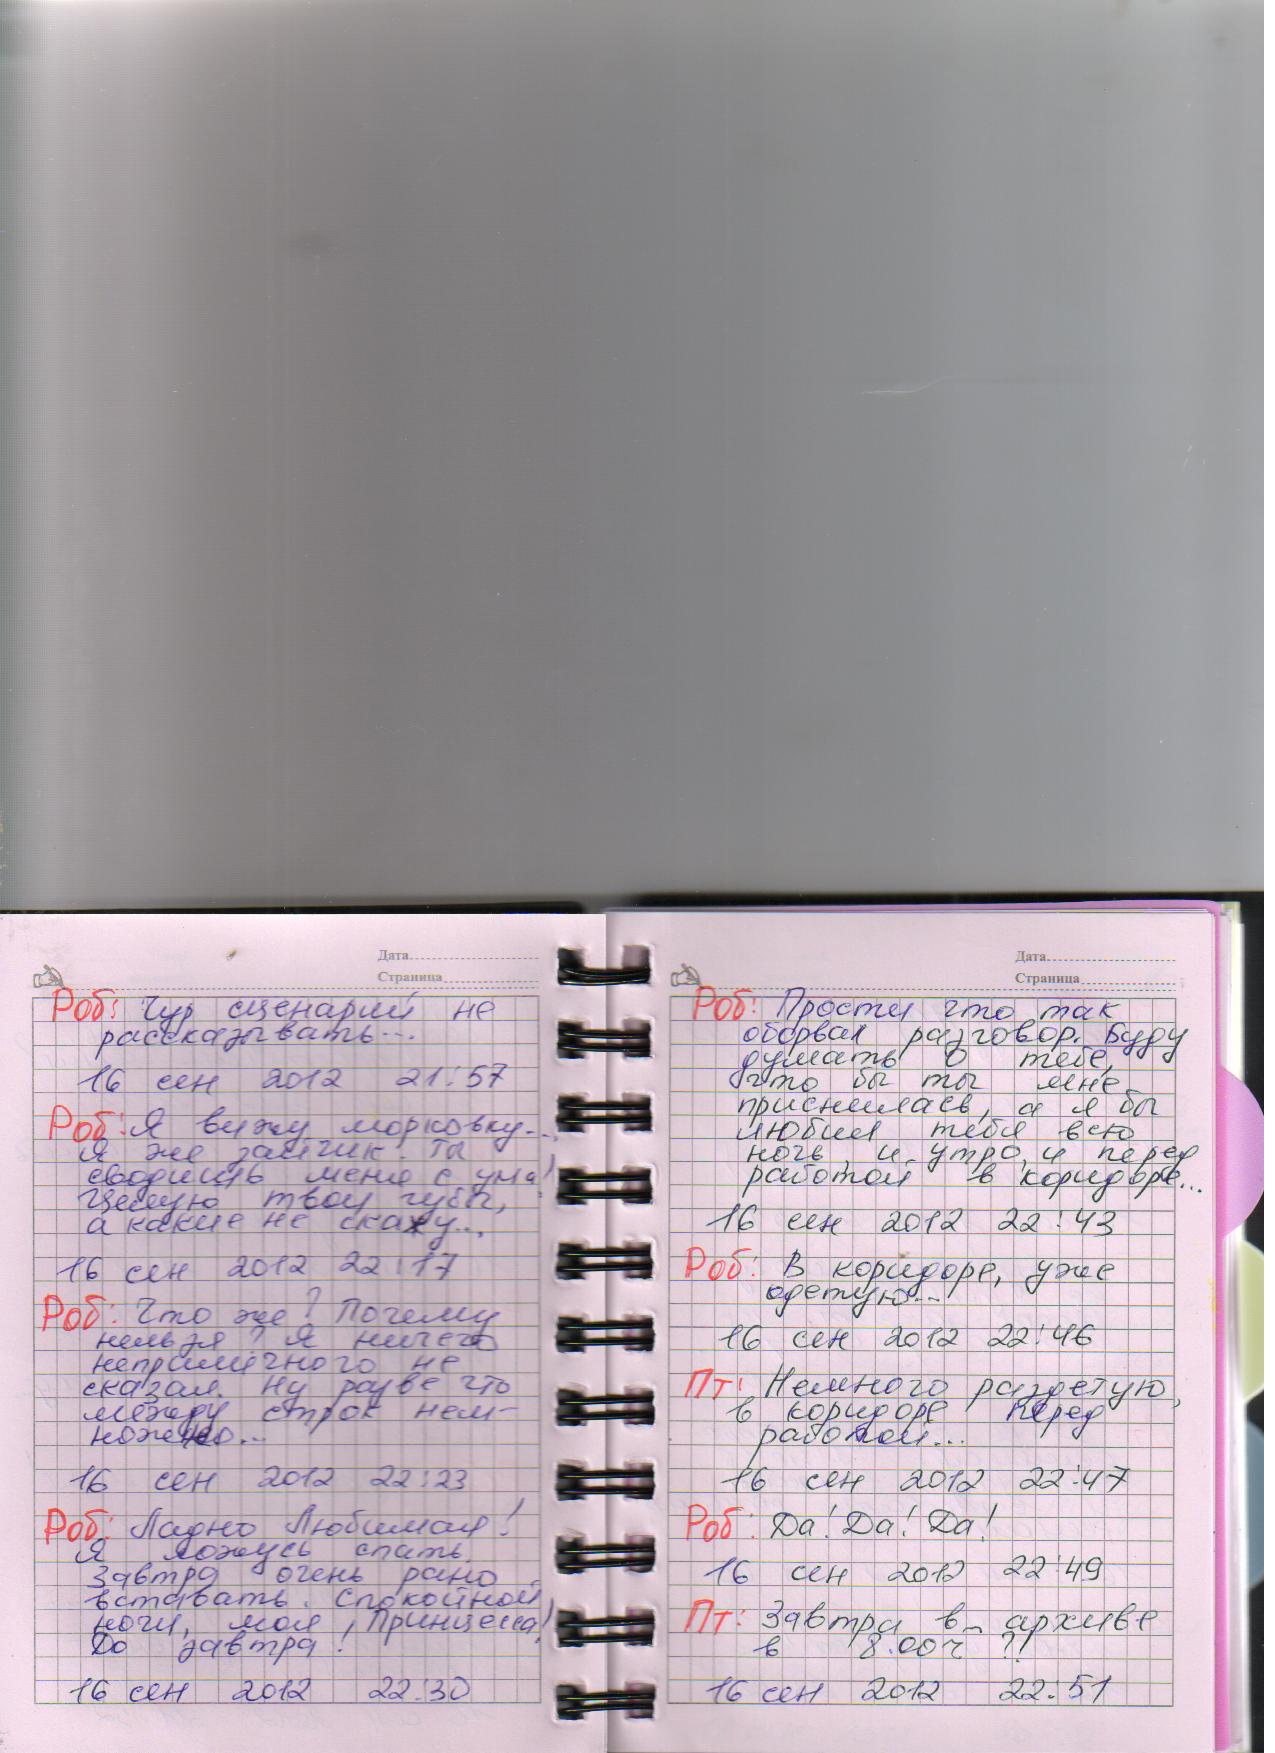 Дата
Страница
Роб: Чур сценарий не
рассказывать...
16 сен 2012 21:57
Роб: Я вижу морковку...
Я же зайчик. Ты
сводишь меня с ума!
Целую твои губы,
а какие не скажу...
16 сен 2012 22:17
Роб: Что же? Почему
нельзя? Я ничего
неприличного не
сказал. Ну разве что
между строк нем-
ножечко...
16 сен 2012 22:23
Роб: Ладно Любимая!
Я ложусь спать.
Завтра очень рано
вставать. Спокойной
ночи, моя Принцесса!
До завтра!
16 сен 2012 22:30
Дата
Страница
Роб: Прости что так
оборвал разговор. Буду
думать о тебе,
что бы ты мне
приснилась, а я бы
любил тебя всю
ночь и утро, и перед
работой в коридоре...
16 сен 2012 22:43
Роб: В коридоре, уже
одетую...
16 сен 2012 22:46
Пт: Немного раздетую,
в коридоре перед
работой...
16 сен 2012 22:47
Роб: Да! Да! Да!
16 сен 2012 22:49
Пт: Завтра в архиве
в 8.00ч ?!
16 сен 2012 22:51